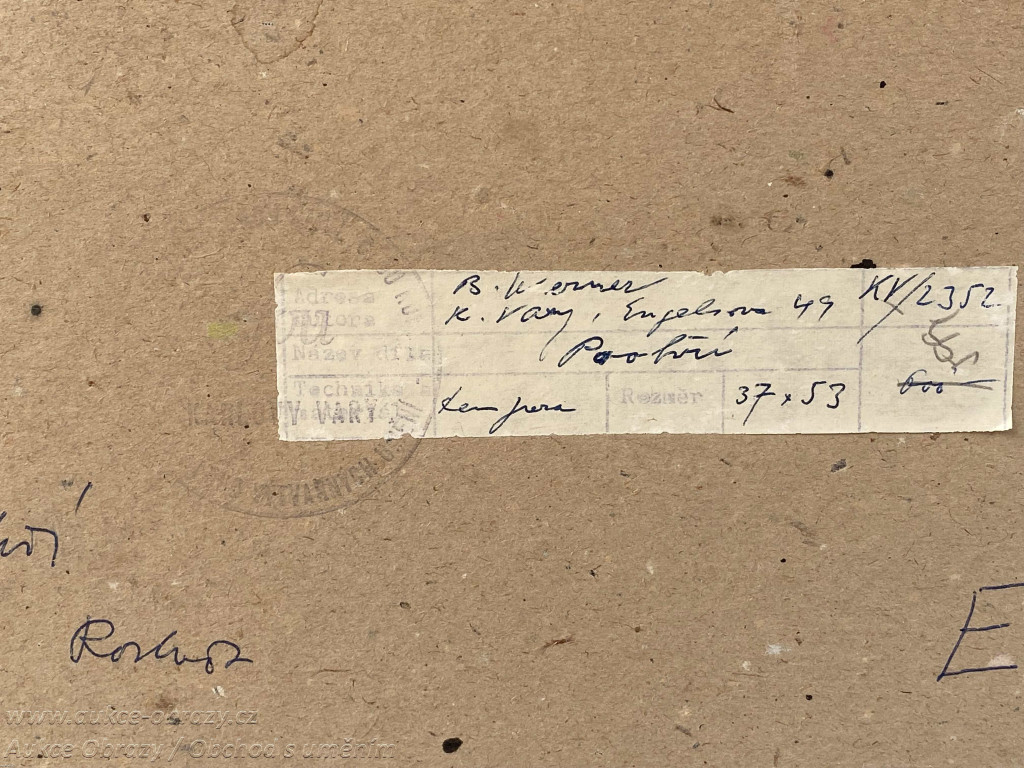 Adresa B. Werner KV/2352
autora K. Vary, Engelsova 49
Název díla Poohří
Technika a tempera Rozměr 37 x 53 600
KARLOVY VARY
E
www.aukce-obrazy.cz
Aukce Obrazy / Obchod s uměním